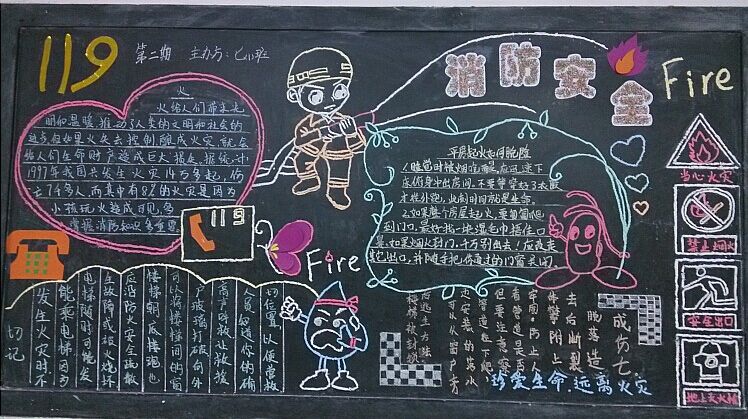 119
第二期 主办方:
消防安全
Fire
火
火给人们带来光
明和温暖,推动了人类的文明和社会的
进步。但如果火失去控制酿成火灾,就会
给人们生命财产造成巨大损失。据统计
1997年我国共发生火灾14万多起,伤
亡7千多人,而其中有8%的火灾是因为
小孩玩火造成
掌握消防知识多重要
119
Fire
平房起火如何脱险
1.睡觉时被烟呛醒,应迅速下
床俯身冲出房间。不要等穿好了衣服
才往外跑,此刻时间就是生命。
2.如果整个房屋起火,要匍匐爬
到门口,最好找一块湿毛巾捂住口
鼻。如果烟火封门,千万别出去!应改走
其它出口,并随手把你通过的门窗关闭。
当心火灾
禁止烟火
安全出口
地上灭火栓
切记
发生火灾时不
能乘电梯,因为
电梯随时可能发
生故障或被火烧坏
应沿防火安全疏散
楼梯朝底楼跑
可以将楼梯间的窗
户玻璃打破,向外
高声呼救,让救援
人员知道你的确
切位置,以便营救
成伤亡
脱落造
去后断裂
珍爱生命 远离火灾